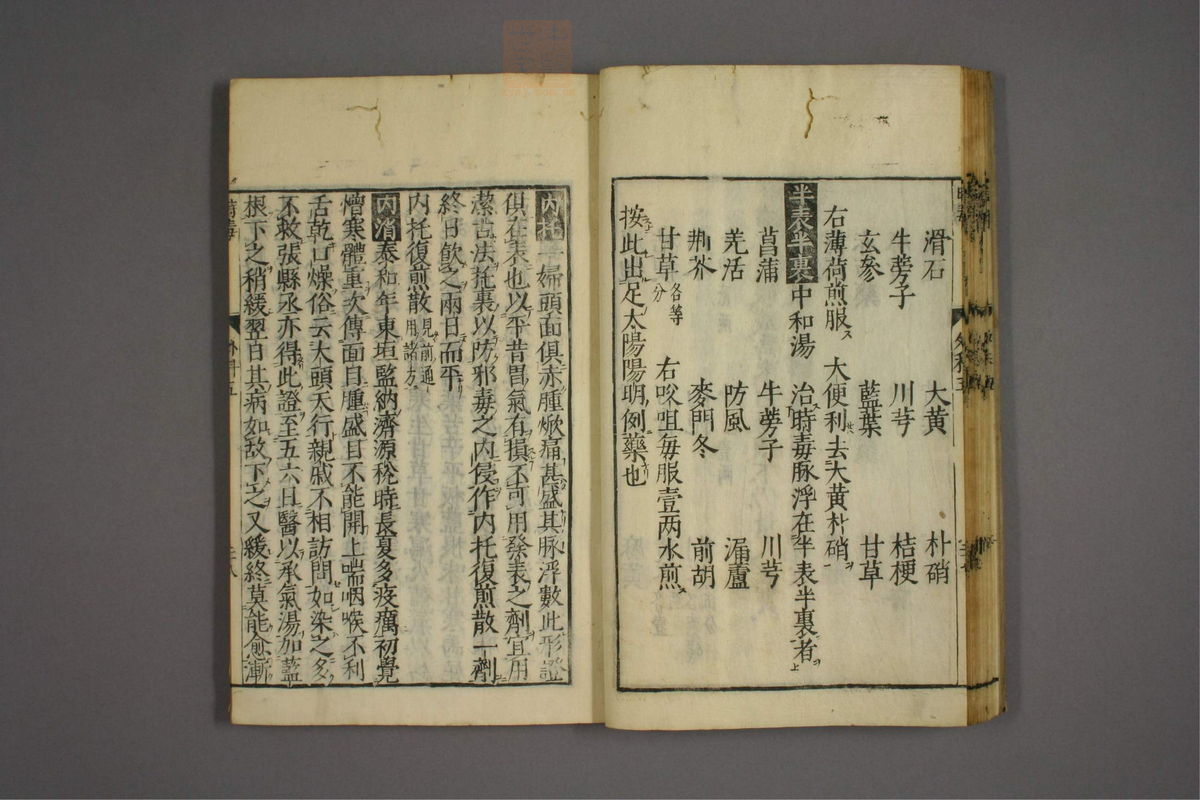 滑石 大黄 朴硝
牛蒡子 川芎 桔梗
玄參 藍葉 甘草
右薄荷煎服ス 大便利去大黄朴硝
半表半裏 中和湯 治時毒脉浮在半表半裏者
菖蒲 牛蒡子 川芎
羌活 防風 漏蘆
荆芥 麥門冬 前胡
甘草各等分 右㕮咀毎服壹两水煎
按此出足太陽陽明例藥也
内托 一婦頭面俱赤腫焮痛甚盛其脉浮數此形證
俱在表也以平昔胃氣有損不可用發表之劑宜用
潔古法托裏以防邪毒之内侵作内托復煎散一劑
終日飲之兩日而平
内托復煎散見前通用諸方
内消 泰和年東垣監納濟源稅時長夏多疫癘初覺
憎寒體重次傳面目腫盛目不能開上喘咽喉不利
舌乾口燥俗云大頭天行親戚不相訪問如染之多
不救張縣丞亦得此證至五六日醫以承氣湯加藍
根下之稍緩翌日其病如故下之又緩終莫能愈漸